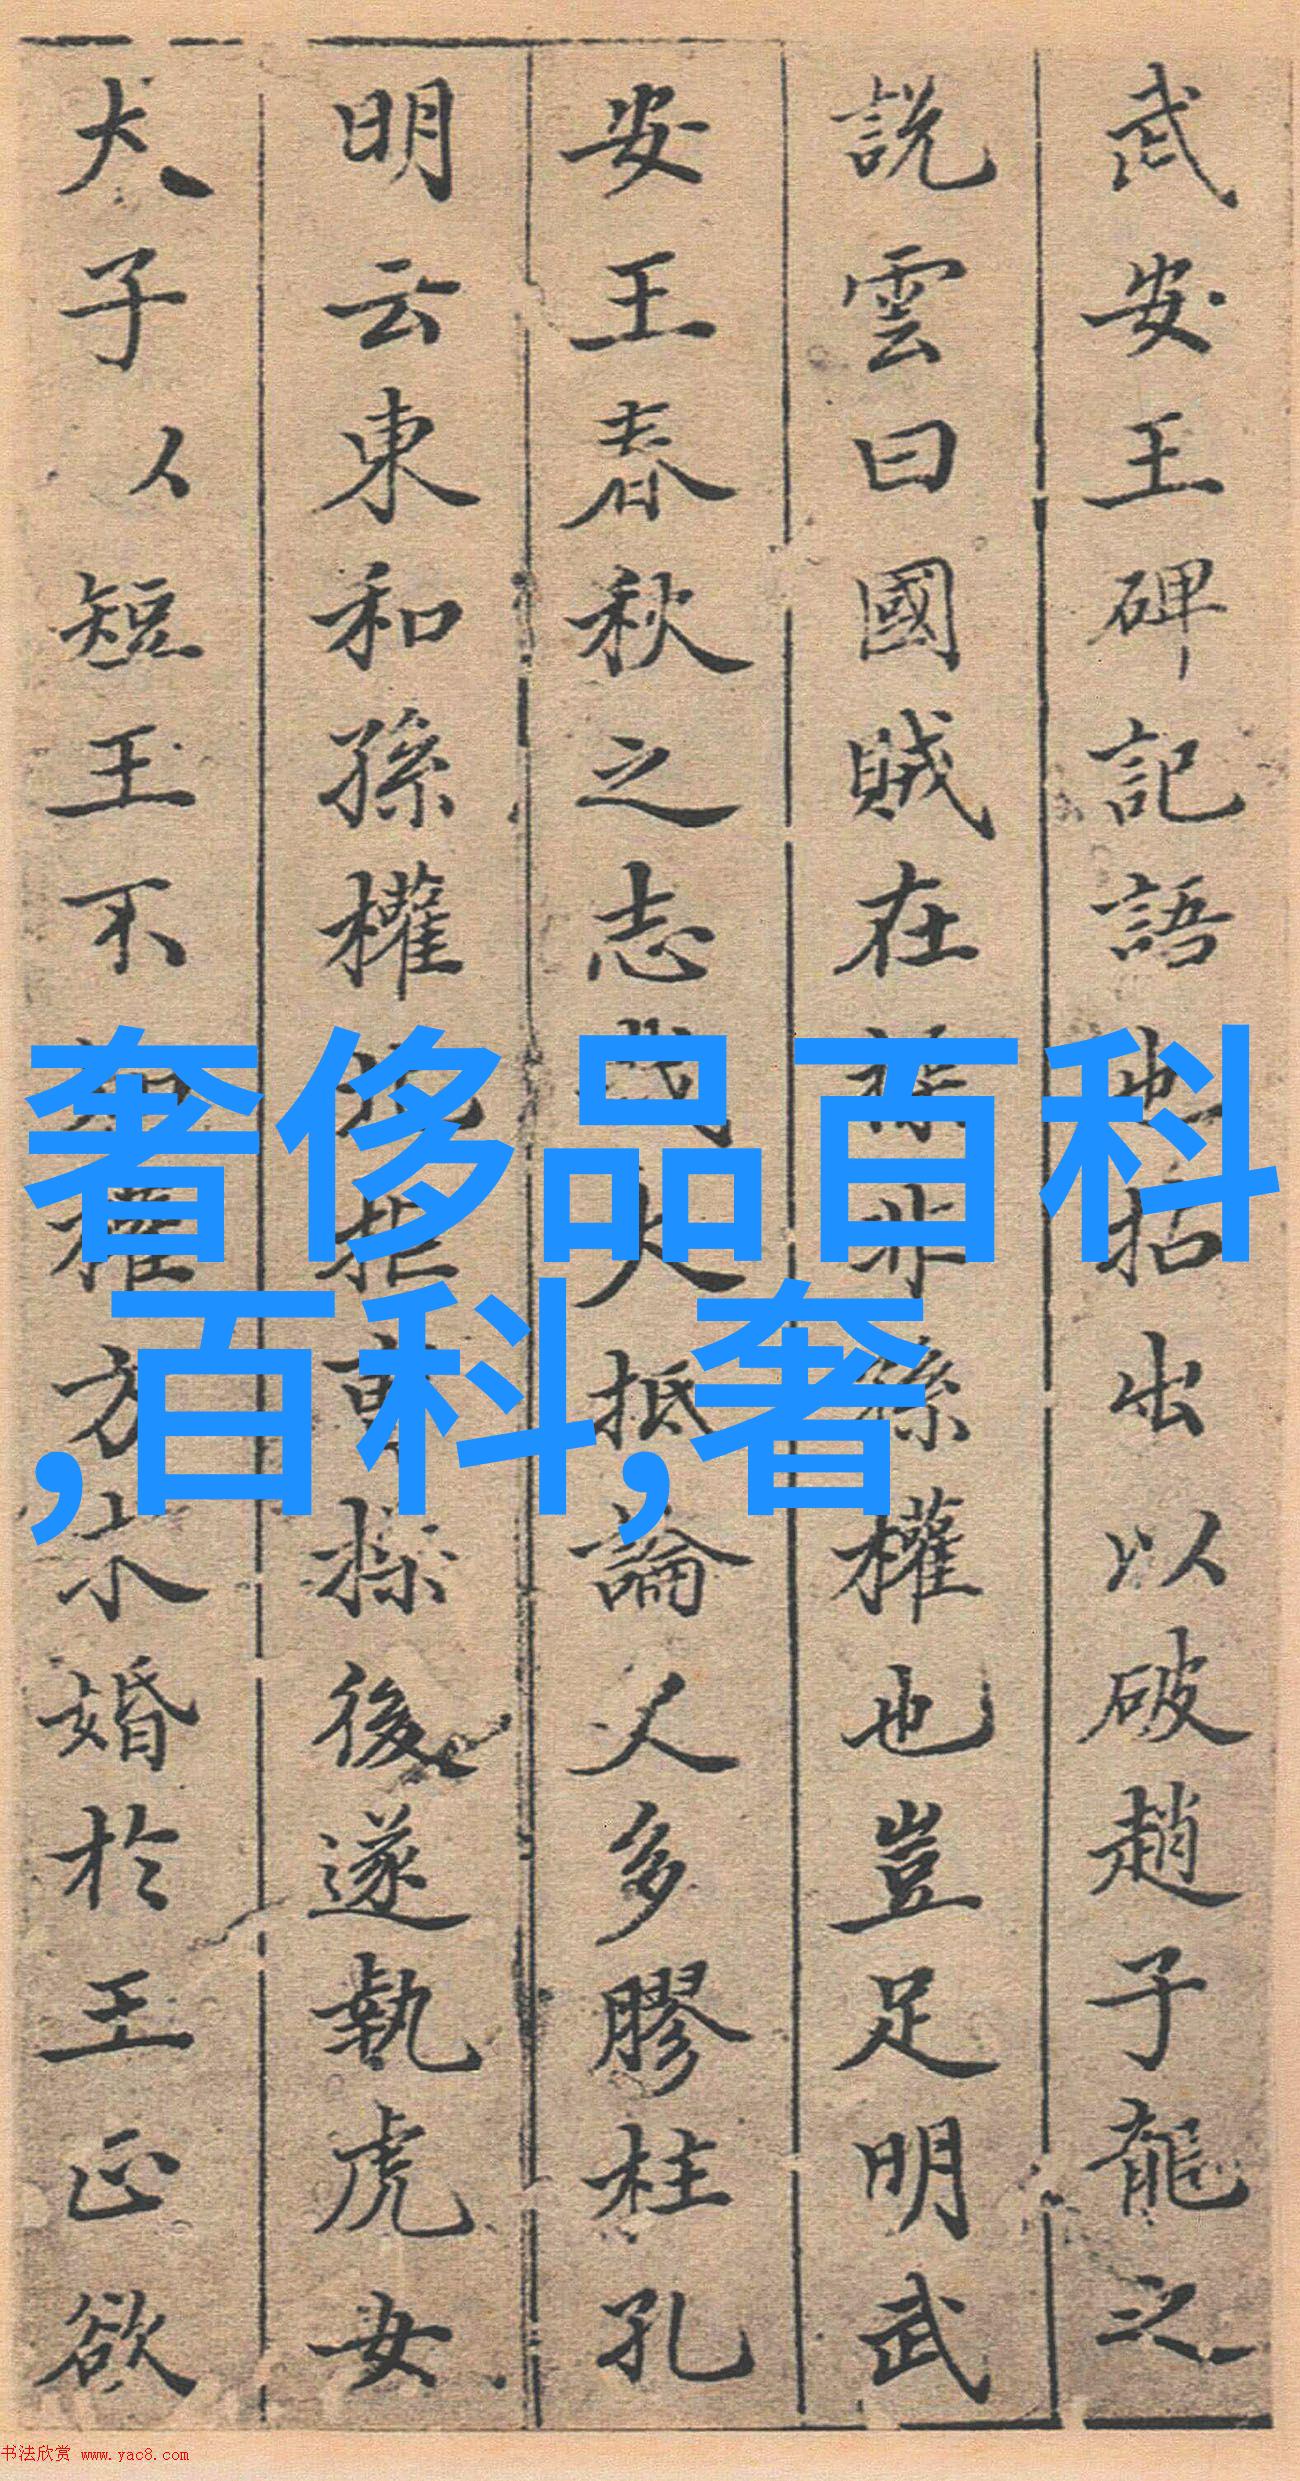 武安王碑記語
出以破趙子龍之
說雲曰國賊在
孫權也豈足明武
安王春秋之志
抵論人多膠柱孔
明云東和孫權
操後遂執虎女
大子人短王不
婚於王正欲
奢侈品百科
,百科,奢
书法欣赏 www.yac8.com